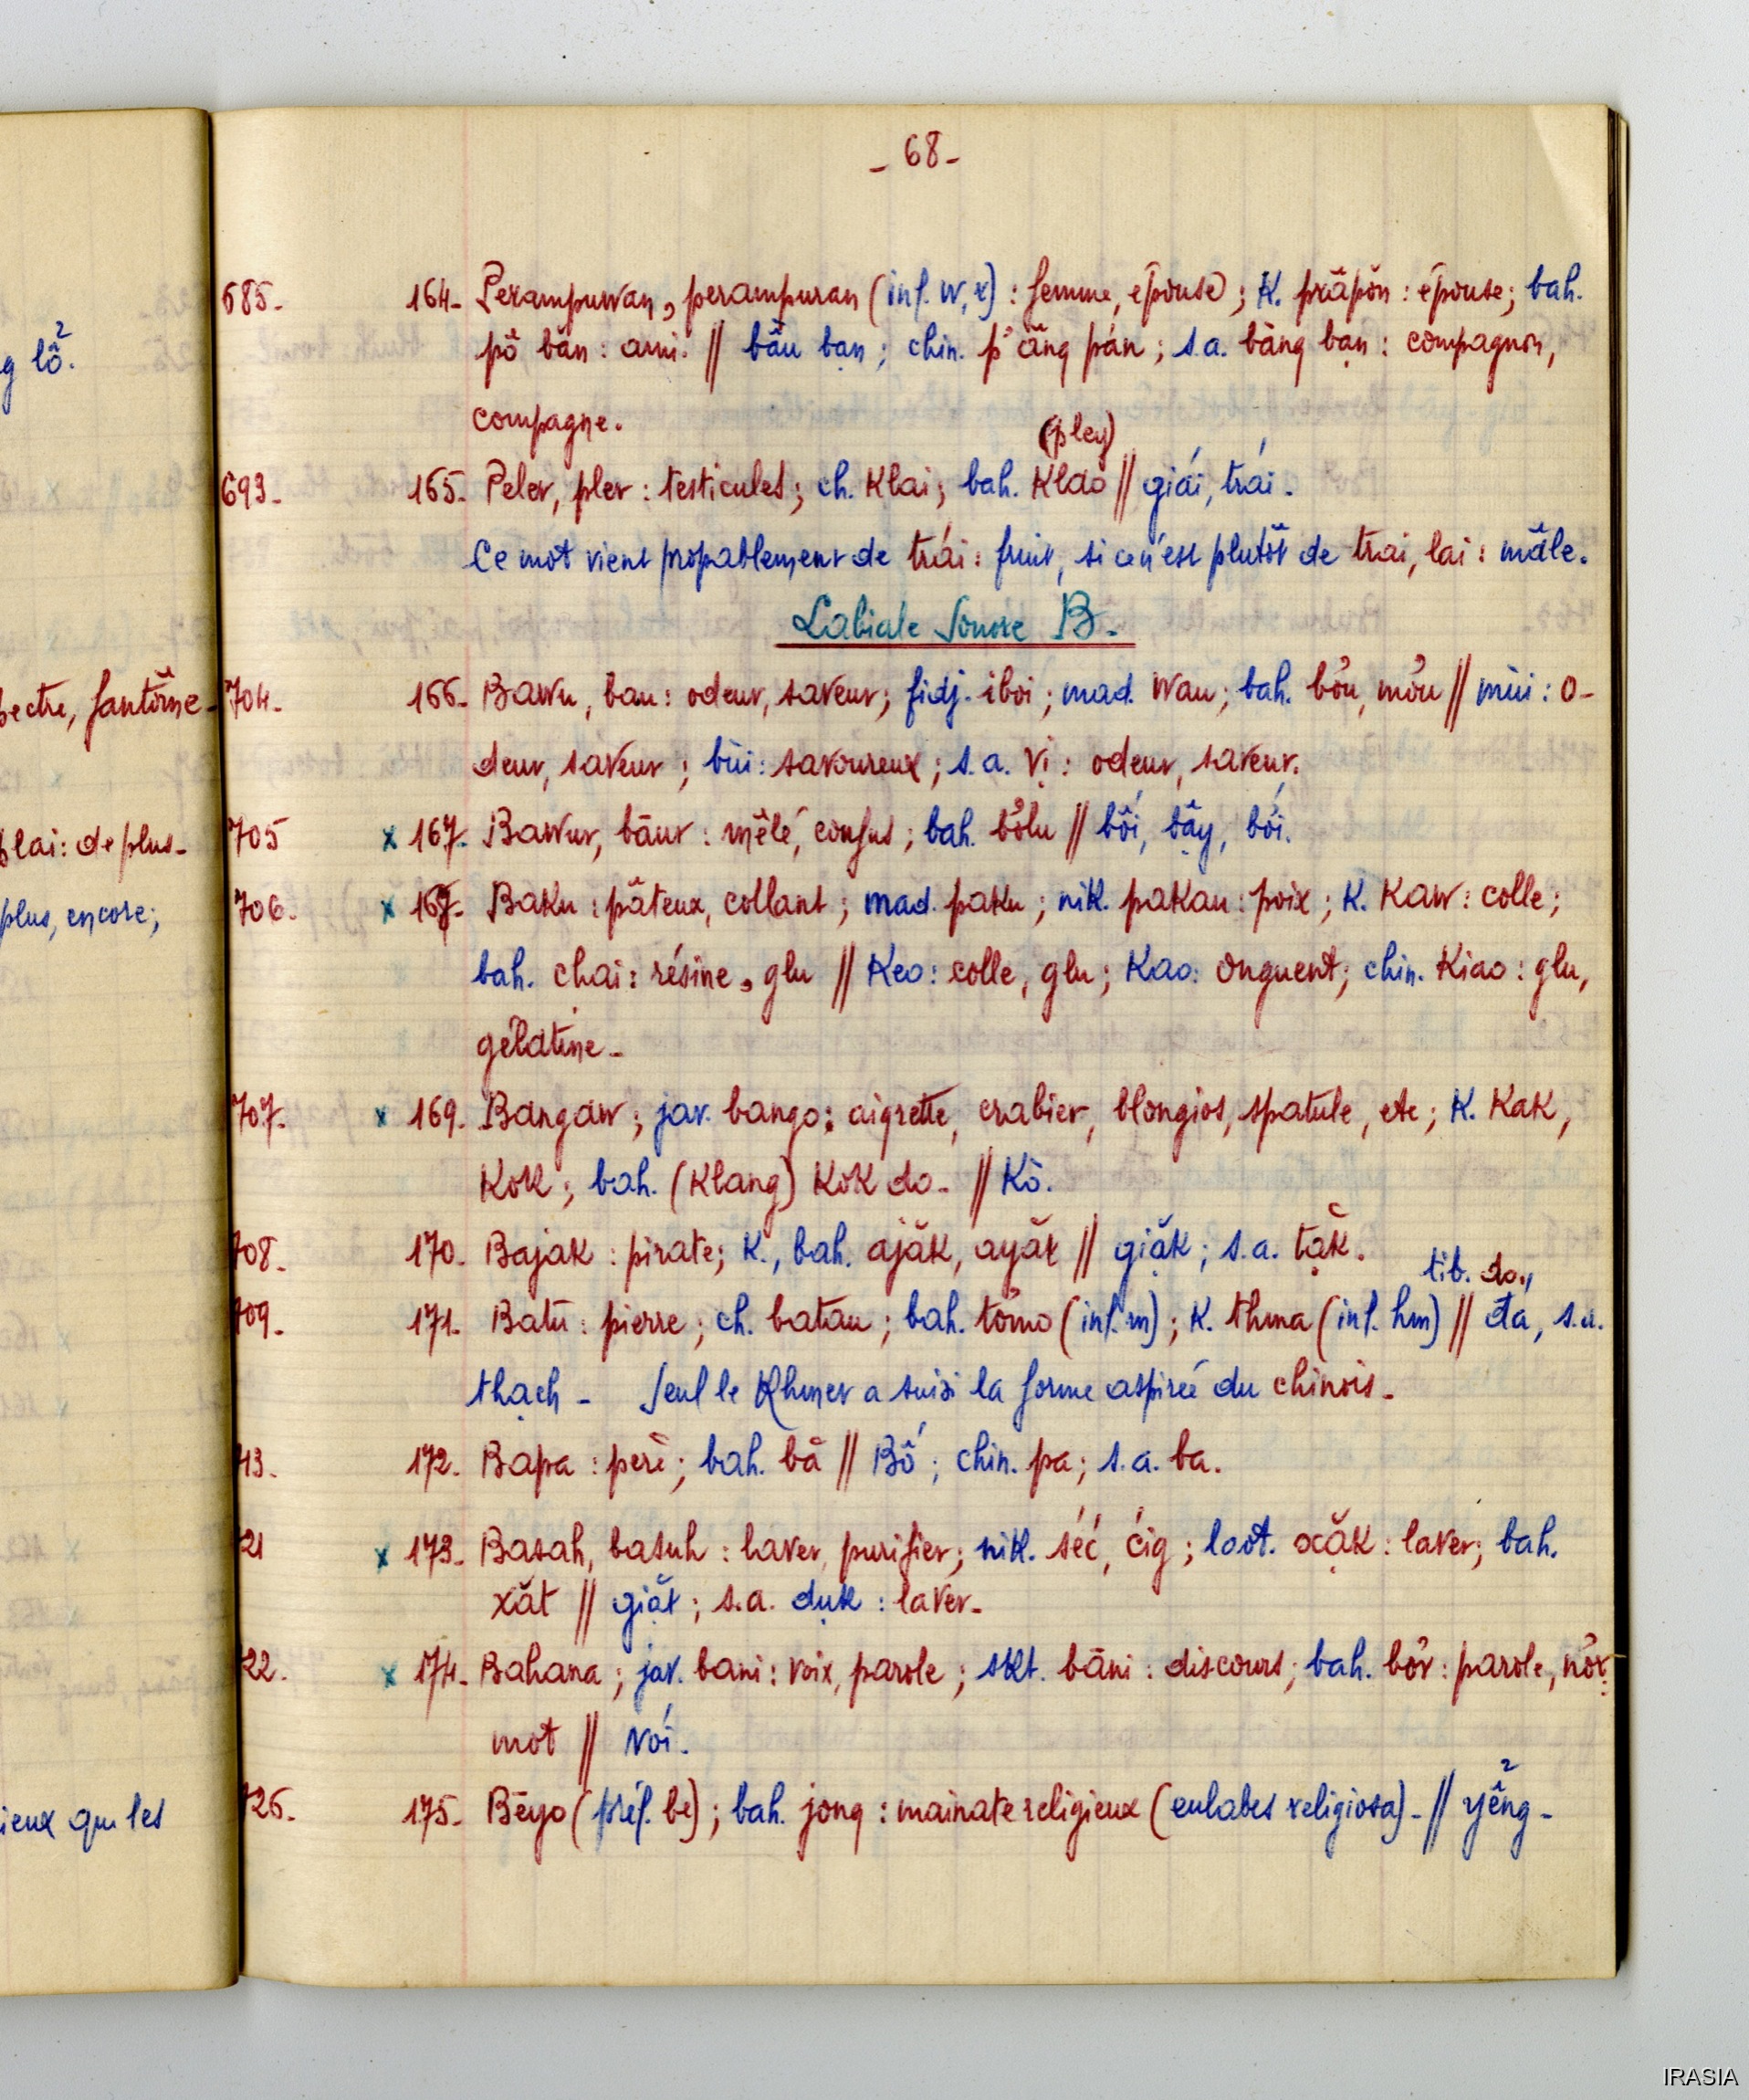 - 68 -
685. 164. Perampuwan, perampuran (inf. w, r) : femme, épouse ; K. prăpŏn : épouse ; bah.
g lổ. pô băn : ami. // bầu bạn ; chin. p'ăng pán ; s.a. bàng bạn : compagnon,
compagne.
(pley)
693. 165. Peler, pler : testicules ; ch. Klai ; bah. Klao // giái, trái.
Ce mot vient propablement de trái : fruit, si ce n'est plutôt de trai, lai : mâle.
Labiale Sonore B.
pectre, fantôme 704. 166. Bawu, bau : odeur, saveur ; fidj. iboi ; mad. wau ; bah. bởu, mởu // mùi : o-
deur, saveur ; bùi : savoureux ; s.a. vị : odeur, saveur.
plai : de plus 705 x 167. Bawur, bāur : mêlé, confus ; bah. bởlu // bối, bậy, bối.
plus, encore ; 706. x 168. Baku : pâteux, collant ; mad. paku ; nik. pakau : poix ; K. Kaw : colle ;
bah. chai : résine, glu // Keo : colle, glu ; Kao : onguent ; chin. Kiao : glu,
gélatine.
707. x 169. Bangaw ; jav. bango : aigrette, crabier, blongios, spatule, etc ; K. Kak,
Kok ; bah. (Klang) Kŏk do. // Kò.
708. 170. Bajak : pirate ; K., bah. ajăk, ayăk // giặk ; s.a. tặk.
tib. do,,
709. 171. Batū : pierre ; ch. batău ; bah. tŏmo (inf. m) ; K. thma (inf. hm) // đá, s.a.
thạch - Seul le Khmer a suivi la forme aspireé du chinois.
13. 172. Bapa : père ; bah. bă // Bố ; chin. pa ; s.a. ba.
21 x 173. Basah, basuh : laver, purifier ; nik. séć, ćig ; loot. xặk : laver ; bah.
xăt // giặt ; s.a. dụk : laver.
22. x 174. Bahana ; jav. bani : voix, parole ; skt. bāni : discours ; bah. bởr : parole, nởr :
mot // nói.
ieux que les 726. 175. Bēyo (préf. be) ; bah. jong : mainate religieux (eulabes religiosa) - // yểng -
IRASIA